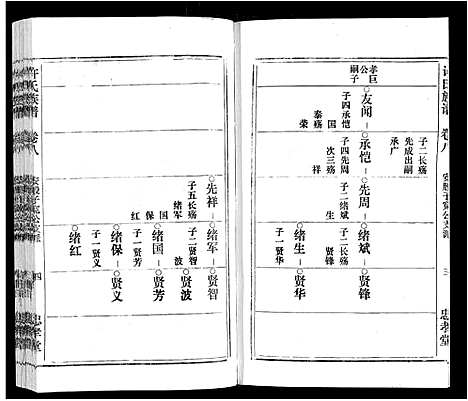 许氏族谱 卷八
三
忠孝堂
子二长殇
先成出嗣
承广
孝巨
公
嗣子
友闻
子四承恺
国
泰殇
荣
承恺
子四先周
次三殇
祥
先周
子二绪斌
生
绪斌
子二长殇
贤锋
贤锋
绪生
子一贤华
贤华
先祥
子五长殇
绪军
国
保
红
绪军
子二贤智
波
贤智
贤波
绪国
子一贤芳
贤芳
绪保
子一贤义
贤义
绪红
许氏族谱 卷八
四
忠孝堂